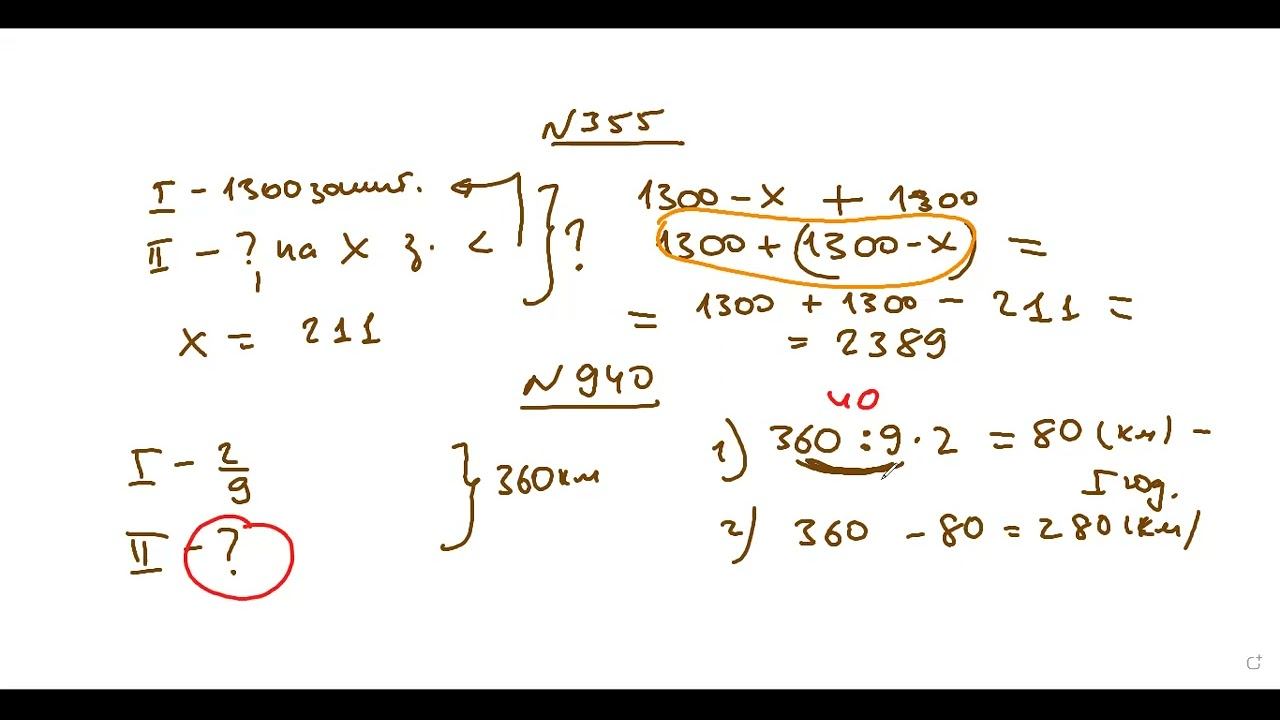 N355
I - 1300 зошит.
II - ? на x з. <
} ?
x = 211
1300 - x + 1300
1300 + (1300 - x) =
= 1300 + 1300 - 211 =
= 2389
N 940
I - 2/9
II - ?
} 360 км
40
1) 360 : 9 · 2 = 80 (км) -
I год.
2) 360 - 80 = 280 (км)